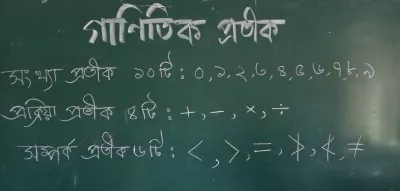 গাণিতিক প্রতীক
সংখ্যা প্রতীক ১০টি : ০,১,২,৩,৪,৫,৬,৭,৮,৯
প্রক্রিয়া প্রতীক ৪টি : +, −, ×, ÷
সম্পর্ক প্রতীক ৬টি : <, >, =, ≯, ≮, ≠